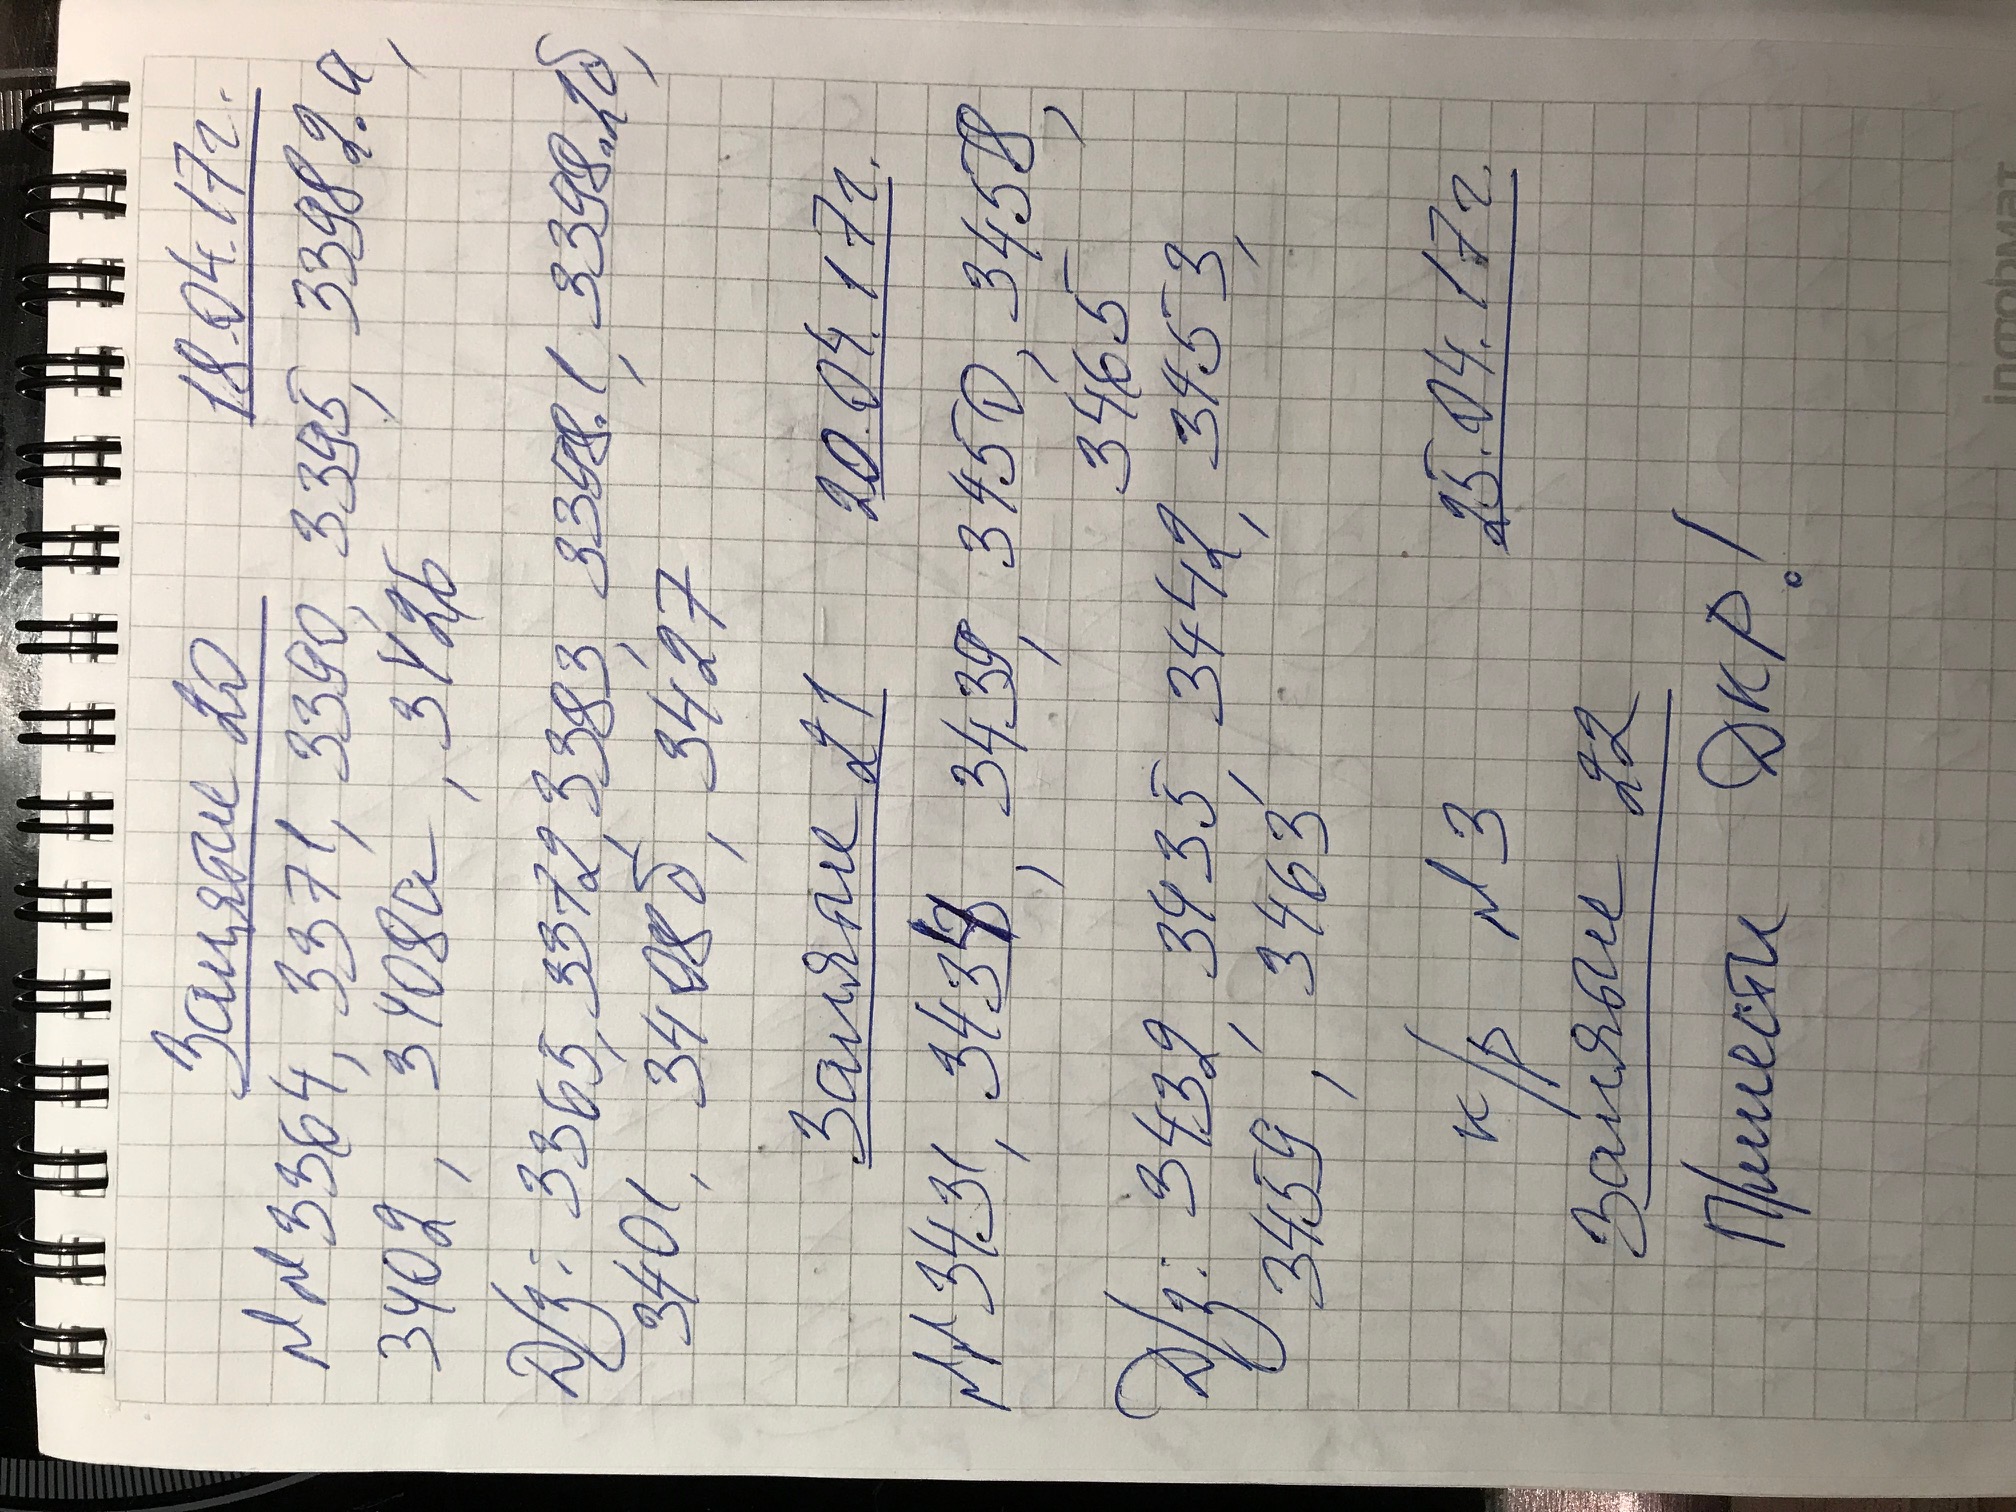 Занятие 20 18.04.17г.
№№3364, 3371, 3390, 3395, 3398 2.а,
3402, 3408а, 3426
Д/з: 3365, 3372, 3383, 3398.1, 3398.2б,
3401, 3408б, 3427
Занятие 21 20.04.17г.
№№3431, 3434, 3439, 3450, 3458,
3465
Д/з: 3432, 3435, 3442, 3453,
3459, 3463
к/р №3 25.04.17г.
Занятие 22
Принести ДКР!